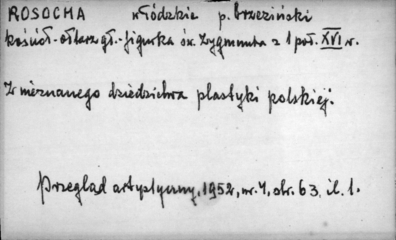 ROSOCHA włódzkie p. brzeziński
kościół-ołtarz gł.-figurka św. Zygmunta z 1 poł. XVI w.
Z nieznanego dziedzictwa plastyki polskiej.
Przegląd artystyczny, 1952, nr. 4, str. 63. il. 1.